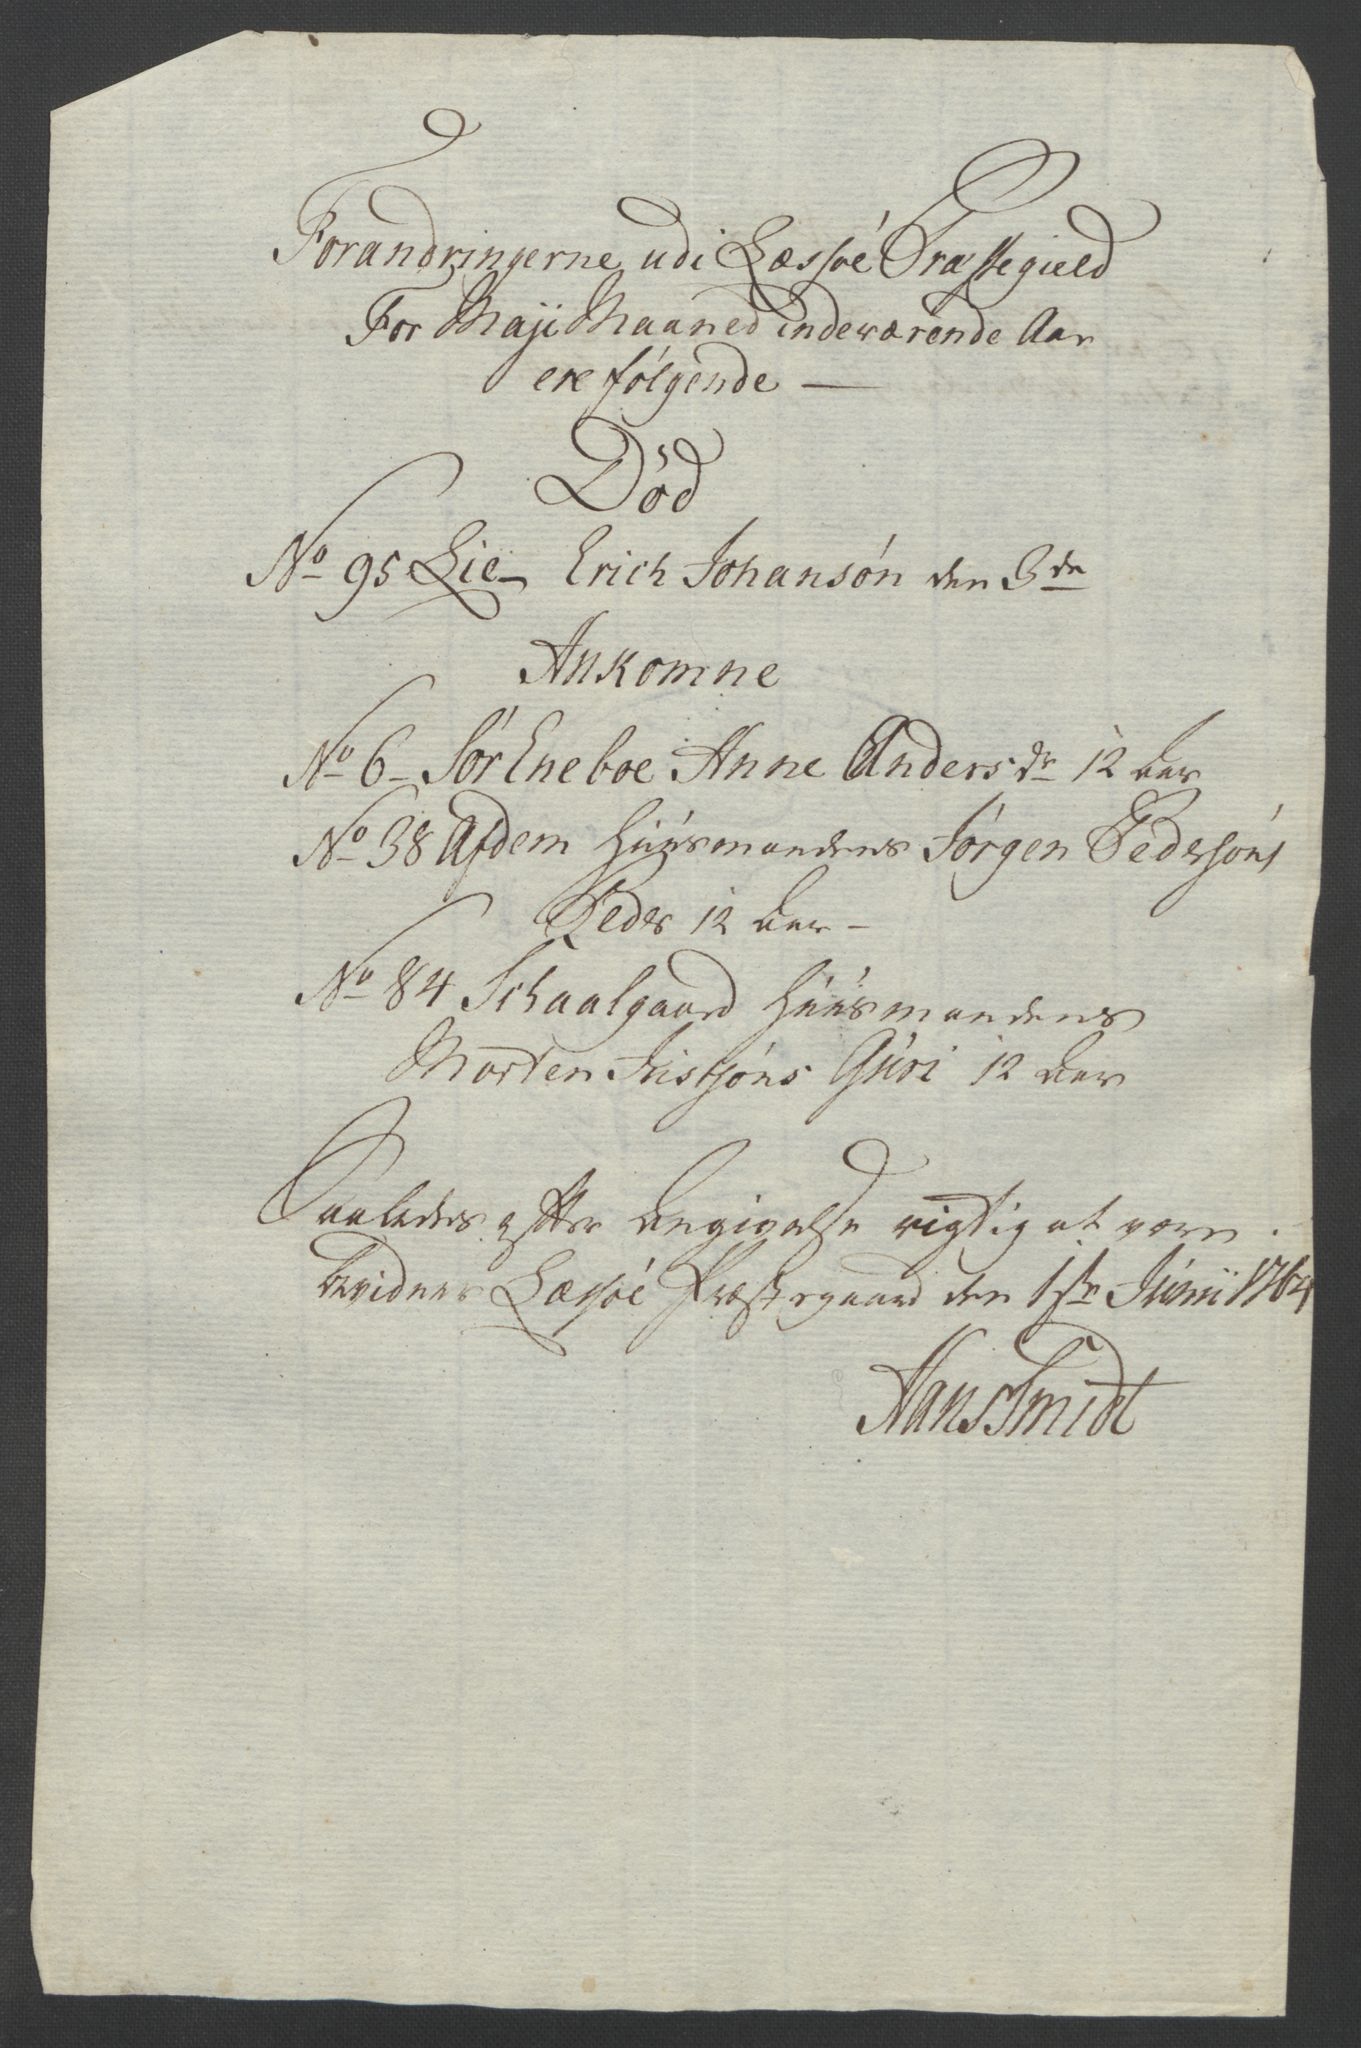 Forandringerne udi Læssøe Præstegield
For Maji Maaned indeværende Aar
ere følgende —
Død
No 95 Lie – Erich Johansøn den 3de
Ankomne
No 6 – Sør Eneboe Anne Andersdr 12 Aar
No 38 Afdem Huusmandens Jørgen Pedersøns
Peder 12 Aar –
No 84 Schaalgaard Huusmandens
Morten Guri 12 Aar
Saaledes efter Angivelse rigtig at være
Læssøe Præstegaard den 1ste Junii 1764
Hans Smidt